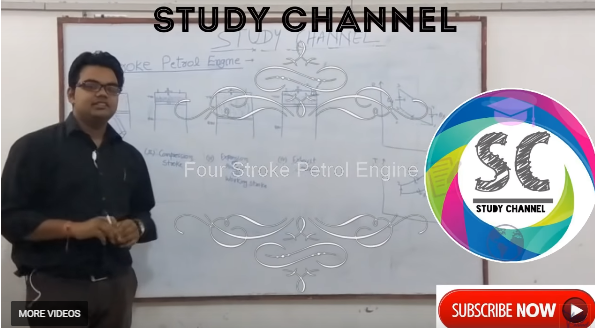 STUDY CHANNEL
STUDY CHANNEL
Stroke Petrol Engine
(2) Compression
Stroke
(3)
(4) Exhaust
Working Stroke
Four Stroke Petrol Engine
SC
STUDY CHANNEL
MORE VIDEOS
SUBSCRIBE NOW